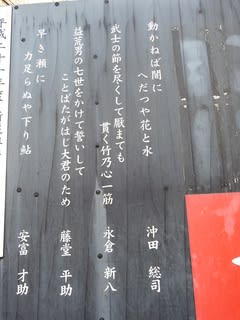 動かねば闇に
へだつや花と水
沖田 総司
武士の節を尽くして厭までも
貫く竹乃心一筋
永倉 新八
益荒男の七世をかけて誓いして
ことばたがはじ大君のため
藤堂 平助
早き瀬に
力足らぬや下り鮎
安富 才助
平成二十一年